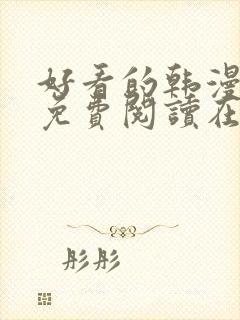 好看的韩漫
免費閱讀在
彤彤